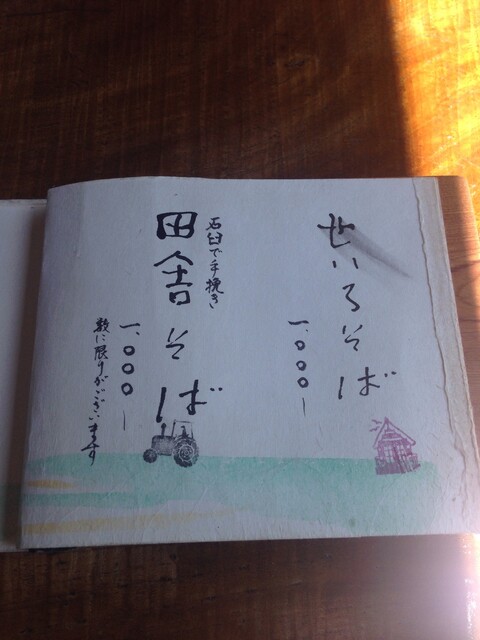 せいろそば
一、〇〇〇ー
石臼で手挽き
田舎そば
一、〇〇〇ー
数に限りがございます